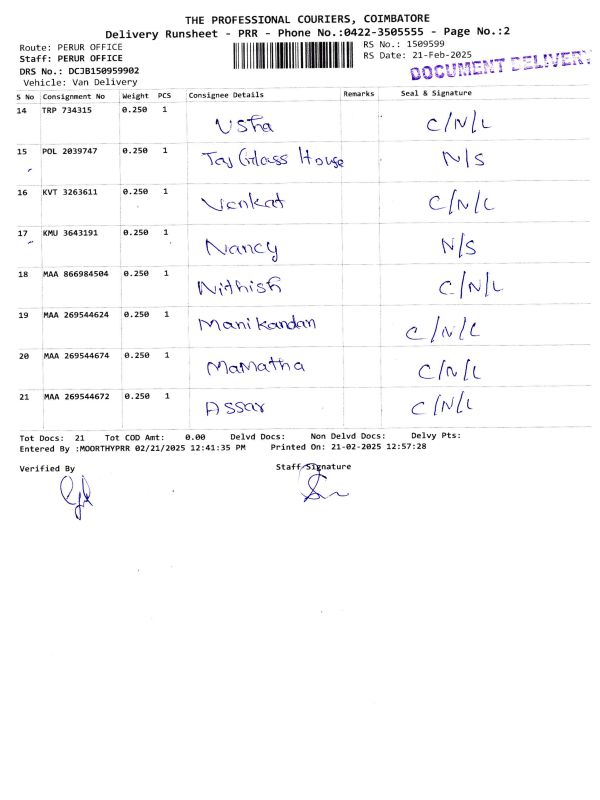 THE PROFESSIONAL COURIERS, COIMBATORE
Delivery Runsheet - PRR - Phone No.:0422-3505555 - Page No.:2
Route: PERUR OFFICE RS No.: 1509599
Staff: PERUR OFFICE RS Date: 21-Feb-2025
DRS No.: DCJB150959902 DOCUMENT DELIVERY
Vehicle: Van Delivery
S No Consignment No Weight PCS Consignee Details Remarks Seal & Signature
14 TRP 734315 0.250 1 Usha C/N/L
15 POL 2039747 0.250 1 Taj Glass House N/S
16 KVT 3263611 0.250 1 Venkat C/N/L
17 KMU 3643191 0.250 1 Nancy N/S
18 MAA 866984504 0.250 1 Nithish C/N/L
19 MAA 269544624 0.250 1 Manikandan C/N/L
20 MAA 269544674 0.250 1 MaMatha C/N/L
21 MAA 269544672 0.250 1 Assar C/N/L
Tot Docs: 21 Tot COD Amt: 0.00 Delvd Docs: Non Delvd Docs: Delvy Pts:
Entered By :MOORTHYPRR 02/21/2025 12:41:35 PM Printed On: 21-02-2025 12:57:28
Verified By Staff Signature